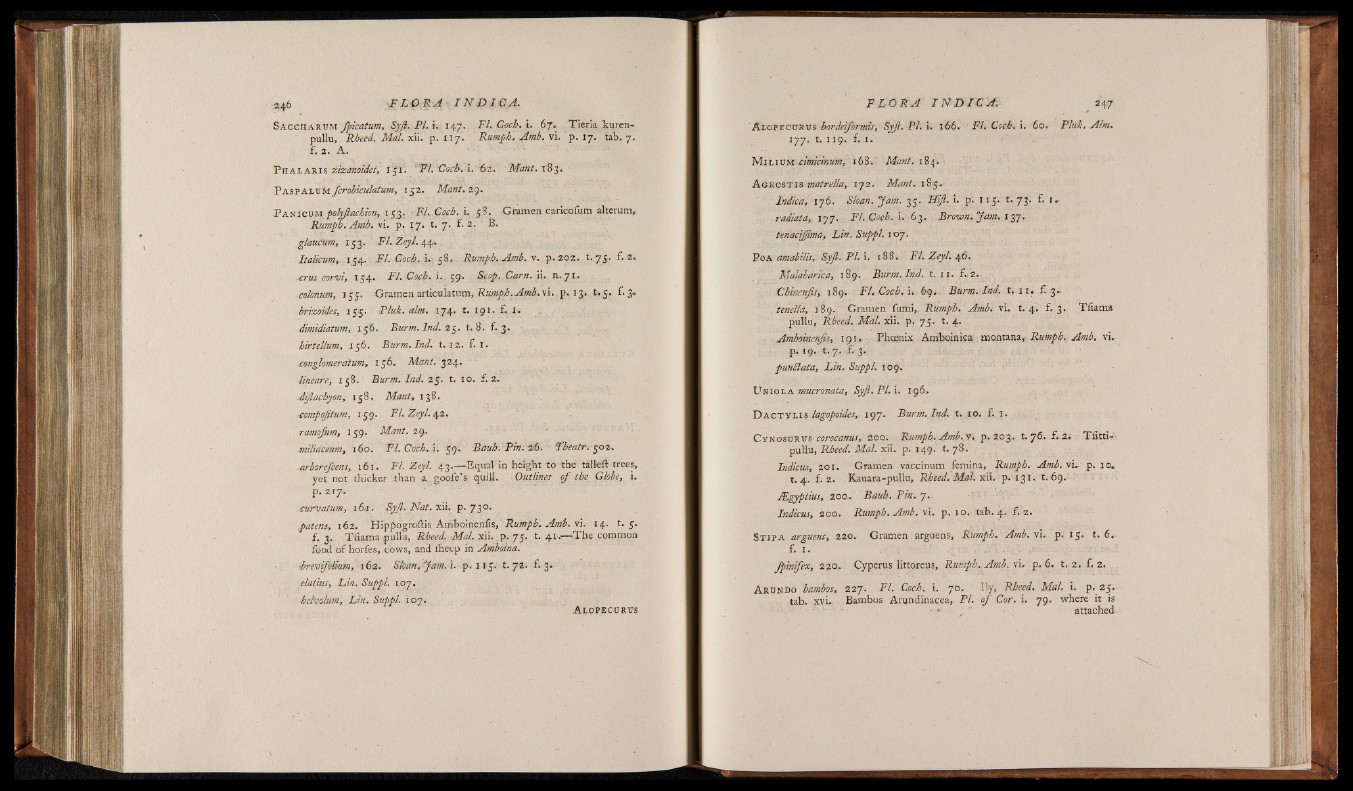 246 FLORA INDICA.
SACCHARUM ſpicatum, Syſt. Pl. i. 147. Fl. Coch. i. 67. Tieria kuren-
pullu, Rheed. Mal. xii. p. 117. Rumph. Amb. vi. p. 17. tab. 7.
f. 2. A.
PHALARIS zizanoides, 151. Fl. Coch. i. 62. Mant. 183.
PASPALUM ſcrobiculatum, 152. Mant. 29.
PANICUM polyſtachion, 153. Fl. Coch. i. 58. Gramen caricoſum alterum,
Rumph. Amb. vi. p. 17. t. 7. f. 2. B.
glaucum, 153. Fl. Zeyl. 44.
Italicum, 154. Fl. Coch. i. 58. Rumph. Amb. v. p. 202. t. 75. f. 2.
crus corvi, 154. Fl. Coch. i. 59. Scop. Carn. ii. n. 71.
colonum, 155. Gramen articulatum, Rumph. Amb. vi. p. 13. t. 5. f. 3.
brizoides, 155. Pluk. alm. 174. t. 191. f. 1.
dimidiatum, 156. Burm. Ind. 25. t. 8. f. 3.
hirtellum, 156. Burm. Ind. t. 12. f. 1.
conglomeratum, 156. Mant. 324.
lineare, 158. Burm. Ind. 25. t. 10. f. 2.
diſtachyon, 158. Mant, 138.
compoſitum, 159. Fl. Zeyl. 42.
ramoſum, 159. Mant. 29.
miliaceum, 160. Fl. Coch. i. 59. Bauh. Pin. 26. Theatr. 502.
arboreſcens, 161. Fl. Zeyl. 43.—Equal in height to the talleſt trees,
yet not thicker than a gooſe's quill. Outlines of the Globe, i.
p. 217.
curvatum, 161. Syſt. Nat. xii. p. 730.
patens, 162. Hippogroſtis Amboinenſis, Rumph. Amb. vi. 14. t. 5.
f. 3. Tſiama pullu, Rheed. Mal. xii. p. 75. t. 41.—The common
food of horſes, cows, and ſheep in Amboina.
brevifolium, 162. Sloan. Jam. i. p. 115. t. 72. f. 3.
elatius, Lin. Suppl. 107.
helvolum, Lin. Suppl. 107.
ALOPECURUS
FLORA INDICA. 247
ALOPECURUS hordeiformis, Syſt. Pl. i. 166. Fl. Coch. i. 60. Pluk. Alm.
177. t. 119. f. 1.
MILIUM cimicinum, 168. Mant. 184.
AGROSTIS matrella, 172. Mant. 185.
Indica, 176. Sloan. Jam. 35. Hiſt. i. p. 115. t. 73. f. 1.
radiata, 177. Fl. Coch. i. 63. Brown. Jam. 137.
tenaciſſima, Lin. Suppl. 107.
POA amabilis, Syſt. Pl. i. 188. Fl. Zeyl. 46.
Malabarica, 189. Burm. Ind. t. 11. f. 2.
Chinenſis, 189. Fl. Coch. i. 69. Burm. Ind. t. 11. f. 3.
tenella, 189. Gramen fumi, Rumph. Amb. vi. t. 4. f. 3. Tſiama
pullu, Rheed. Mal. xii. p. 75. t. 4.
Amboinenſis, 191. Phœnix Amboinica montana, Rumph. Amb. vi.
p. 19. t. 7. f. 3.
punctata, Lin. Suppl. 109.
UNIOLA mucronata, Syſt. Pl. i. 196.
DACTYLIS lagopoides, 197. Burm. Ind. t. 10. f. 1.
CYNOSURUS corocanus, 200. Rumph. Amb. v. p. 203. t. 76. f. 2. Tſitti-
pullu, Rheed. Mal. xii. p. 149. t. 78.
Indicus, 201. Gramen vaccinum femina, Rumph. Amb. vi. p. 10.
t. 4. f. 2. Kauara-pullu, Rheed. Mal. xii. p. 131. t. 69.
Ægyptius, 200. Bauh. Pin. 7.
Indicus, 200. Rumph. Amb. vi. p. 10. tab. 4. f. 2.
STIPA arguens, 220. Gramen arguens, Rumph. Amb. vi. p. 15. t. 6.
f. 1.
ſpinifex, 220. Cyperus littoreus, Rumph. Amb. vi. p. 6. t. 2. f. 2.
ARUNDO bambos, 227. Fl. Coch. i. 70. Ily, Rheed. Mal. i. p. 25.
tab. xvi. Bambos Arundinacea, Pl. of Cor. i. 79. where it is
attached